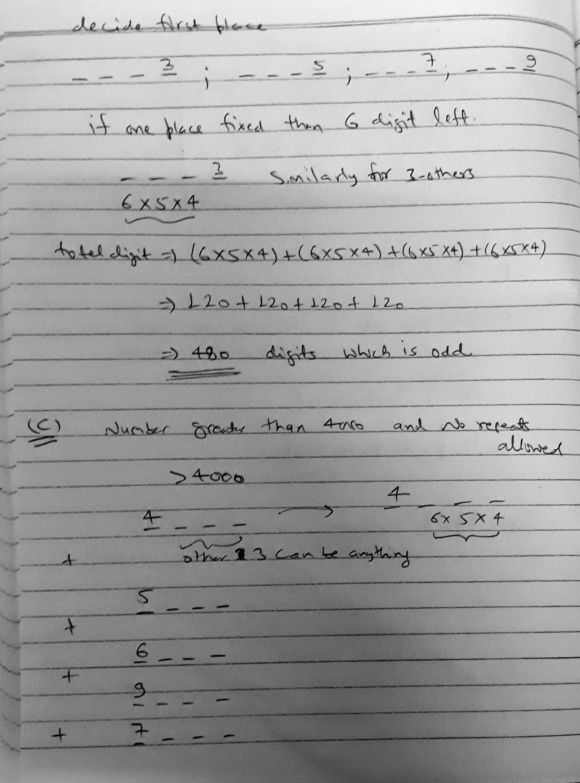 decide first place
_ _ _ 3 ; _ _ _ 5 ; _ _ _ 7 , _ _ _ 9
if one place fixed than 6 digit left.
_ _ _ 3 Similarly for 3-others
6 × 5 × 4
total digit ⇒ (6×5×4) + (6×5×4) + (6×5×4) + (6×5×4)
⇒ 120 + 120 + 120 + 120
⇒ 480 digits which is odd
(C) Number greater than 4000 and No repeats
allowed
>4000
4 _ _ _ → 4 _ _ _
6 × 5 × 4
+ other 3 can be anything
5 _ _ _
+
6 _ _ _
+
9 _ _ _
+ 7 _ _ _